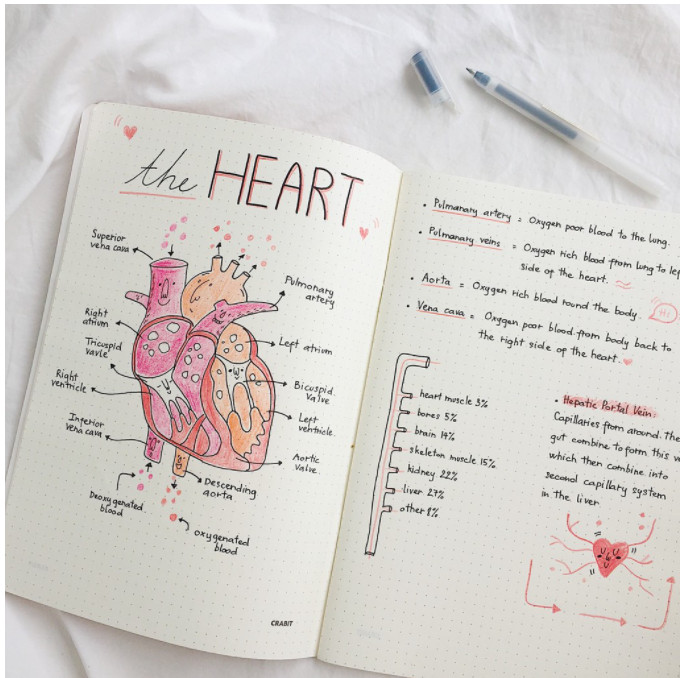 the HEART
Superior
vena cava
Pulmonary
artery
Right
atrium
Left atrium
Tricuspid
vavle
Bicuspid
Valve
Right
ventricle
Left
ventricle
Inferior
vena cava
Aortic
valve
Descending
aorta
Deoxygenated
blood
oxygenated
blood
CRABIT
• Pulmanary artery = Oxygen poor blood to the lung.
• Pulmanary veins = Oxygen rich blood from lung to lef
side of the heart.
• Aorta = Oxygen rich blood round the body.
Hi
• Vena cava = Oxygen poor blood from body back to
the right side of the heart.
heart muscle 3%
bones 5%
brain 14%
skeleton muscle 15%
kidney 22%
liver 27%
other 8%
• Hepatic Portal Vein:
Capillaries from around. The
gut combine to form this v
which then combine into
second capillary system
in the liver